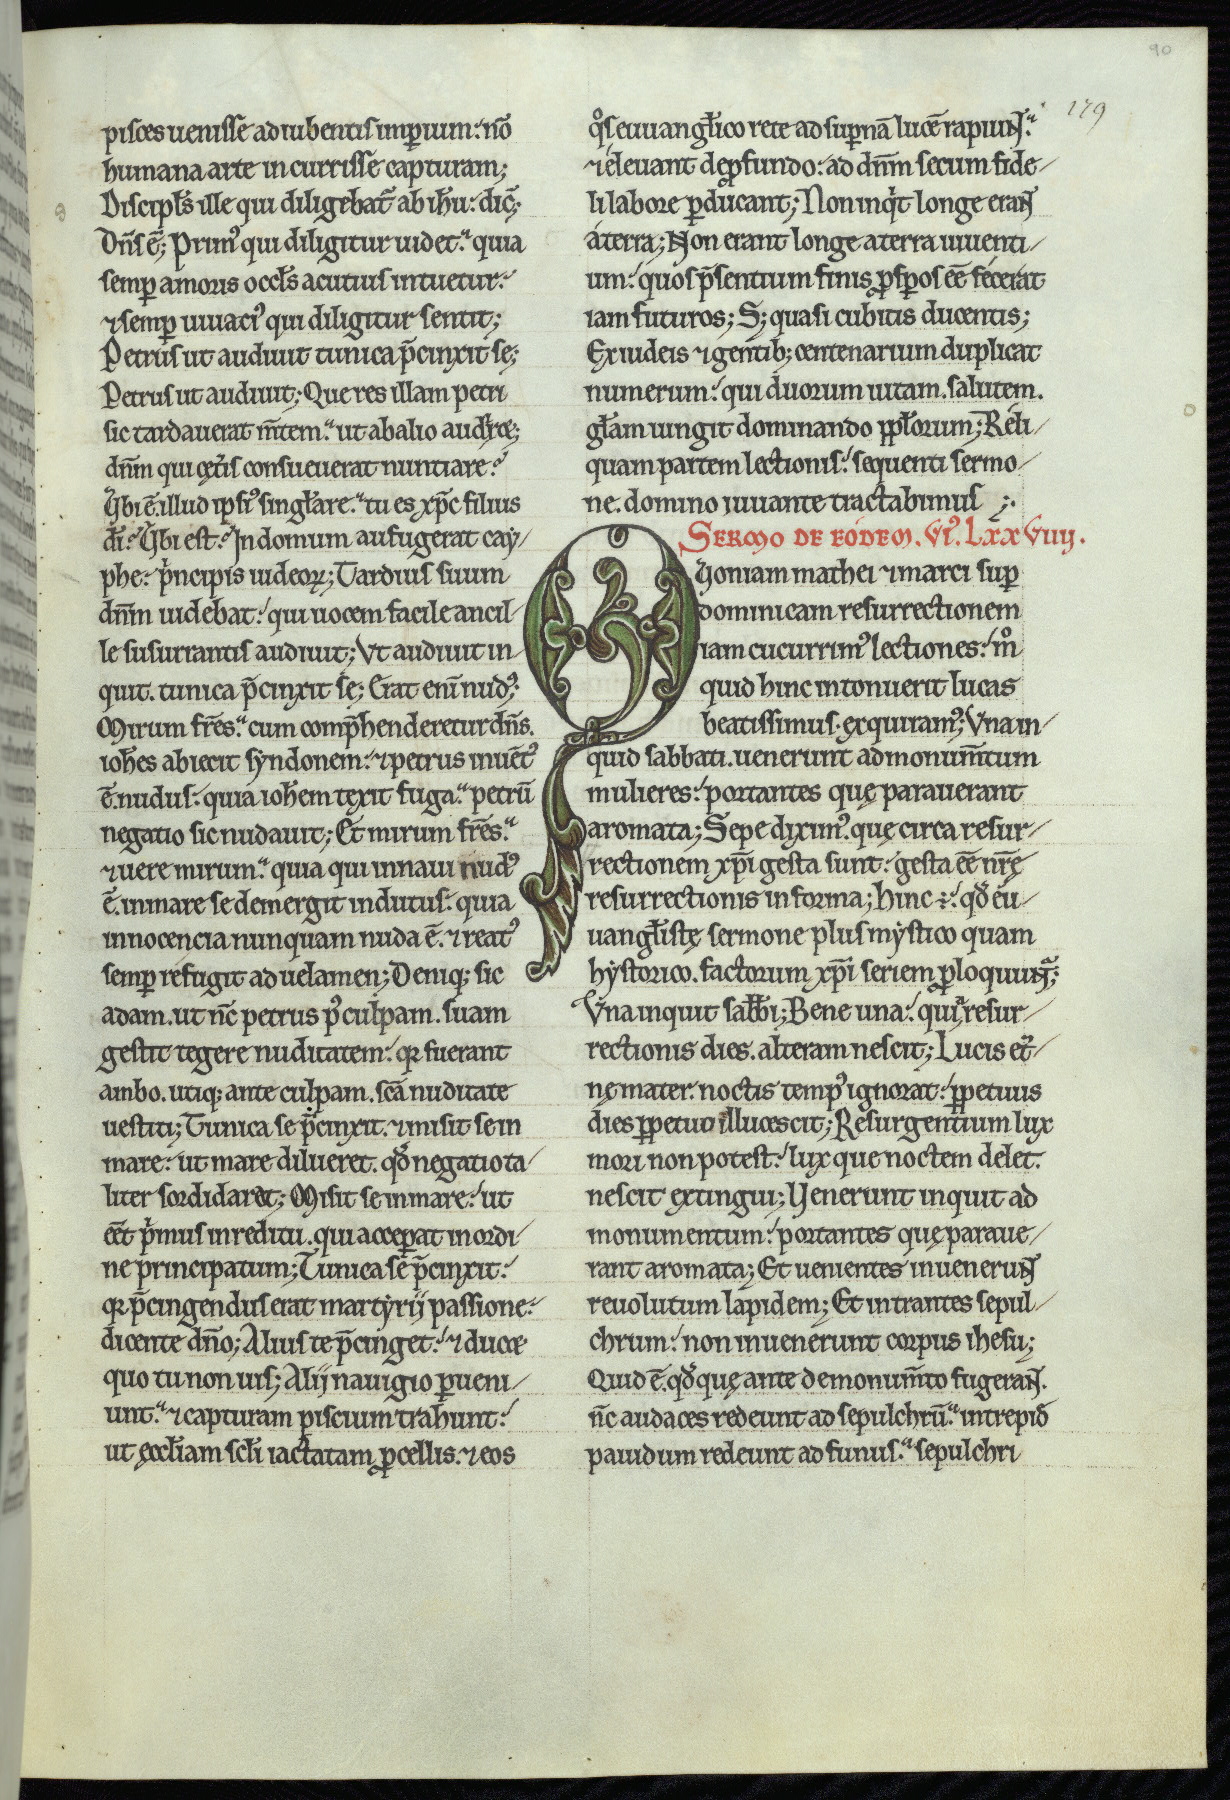 90
179
pisces uenisse ad iubentis imp̄ium: nō
humana arte incurrisse capturam;
Discipl̄s ille qui diligebat̄ ab ih̄u: dic̄;
Dn̄s ē; Primꝰ qui diligitur uidet: quia
semꝑ amoris occl̄s acutius intuetur:
⁊ semꝑ uiuaciꝰ qui diligitur sentit;
Petrus ut audiuit tunica p̄cinxit se;
Petrus ut audiuit; Que res illam petri
sic tardauerat m̄tem: ut ab alio audiret;
dn̄m qui cęt̄is consueuerat nuntiare:
Vbi ē. illud ipsiꝰ singl̄are. tu es xp̄c filius
dī: Vbi est: In domum aufugerat cay/
phe: pͥncipis iudeoꝝ; Tardius suum
dn̄m uidebat: qui uocem facile ancil/
le susurrantis audiuit; Vt audiuit in/
quit. tunica p̄cinxit se; Erat enī nudꝰ;
Mirum fr̄es: cum comp̄henderetur dn̄s.
ioh̄es abiecit syndonem: ⁊ petrus inuēt̄ꝰ
ē. nudus: quia ioh̄em texit fuga: petrū
negatio sic nudauit; Et mirum fr̄es:
⁊ uere mirum: quia qui in naui nudꝰ
ē. in mare se demergit indutus: quia
innocencia nunquam nuda ē. ⁊ reatꝰ
semꝑ refugit ad uelamen; Deniqꝫ sic
adam. ut n̄c petrus pꝰ culpam. suam
gestit tegere nuditatem: qꝛ fuerant
ambo. utiqꝫ ante culpam. sc̄a nuditate
uestiti; Tunica se p̄cinxit. ⁊ misit se in
mare: ut mare dilueret. qđ negatio ta/
liter sordidaret; Misit se in mare: ut
eēt pͥmus in reditu. qui acceꝑat in ordi/
ne principatum; Tunica se p̄cinxit:
qꝛ p̄cingendus erat martyrij passione:
dicente dn̄o; Alius te p̄cinget: ⁊ ducet
quo tu non uis; Alij nauigio ꝑueni/
unt: ⁊ capturam piscium trahunt:
ut ęccl̄iam scl̄i iactatam ꝓcellis. ⁊ eos
qͦs euuangl̄ico rete ad suꝑnā lucē rapiuNͭ:
⁊ eleuant de ꝓfundo: ad dn̄m secum fide/
li labore ꝑducant; Non inqͥt longe eraNͭ
a terra; Non erant longe a terra uiuenti/
um: quos p̄sentium finis ꝓsꝑos eē fecerat
iam futuros; Sꝫ quasi cubitis ducentis;
Ex iudeis ⁊ gentibꝫ centenarium duplicat
numerum: qui duorum uitam. salutem.
gl̄am iungit dominando ppl̄orum; Reli/
quam partem lectionis: sequenti sermo/
ne. domino iuuante tractabimus ;.
SERMO DE EODEM. VI. LXXVIIIJ.
QVoniam mathei ⁊ marci suꝑ
dominicam resurrectionem
iam cucurrimꝰ lectiones: mͦ
quid hinc intonuerit lucas
beatissimus. exquiramꝰ; Vna in/
quid sabbati. uenerunt ad monum̄tum
mulieres: portantes quę parauerant
aromata; Sepe diximꝰ. quę circa resur/
rectionem xp̄i gesta sunt: gesta eē nr̄ę
resurrectionis in forma; hinc ÷: qđ eu/
uangl̄istę sermone plus mystico quam
hystorico. factorum xp̄i seriem ꝓloquuNͭ;
Vna inquit sabb̄i; Bene una: quia resur/
rectionis dies. alteram nescit; Lucis et̄/
nę mater. noctis tempꝰ ignorat: ꝑpetuus
dies ꝑpetuo illucescit; Resurgentium lux
mori non potest: lux que noctem delet.
nescit extingui; Venerunt inquit ad
monumentum: portantes quę paraue/
rant aromata; Et uenientes inueneruNͭ
reuolutum lapidem; Et intrantes sepul/
chrum: non inuenerunt corpus ihesu;
Quid ē. qđ quę ante de monum̄to fugeraNͭ.
n̄c audaces redeunt ad sepulchrū: intrepid̄
pauidum redeunt ad funus: sepulchri